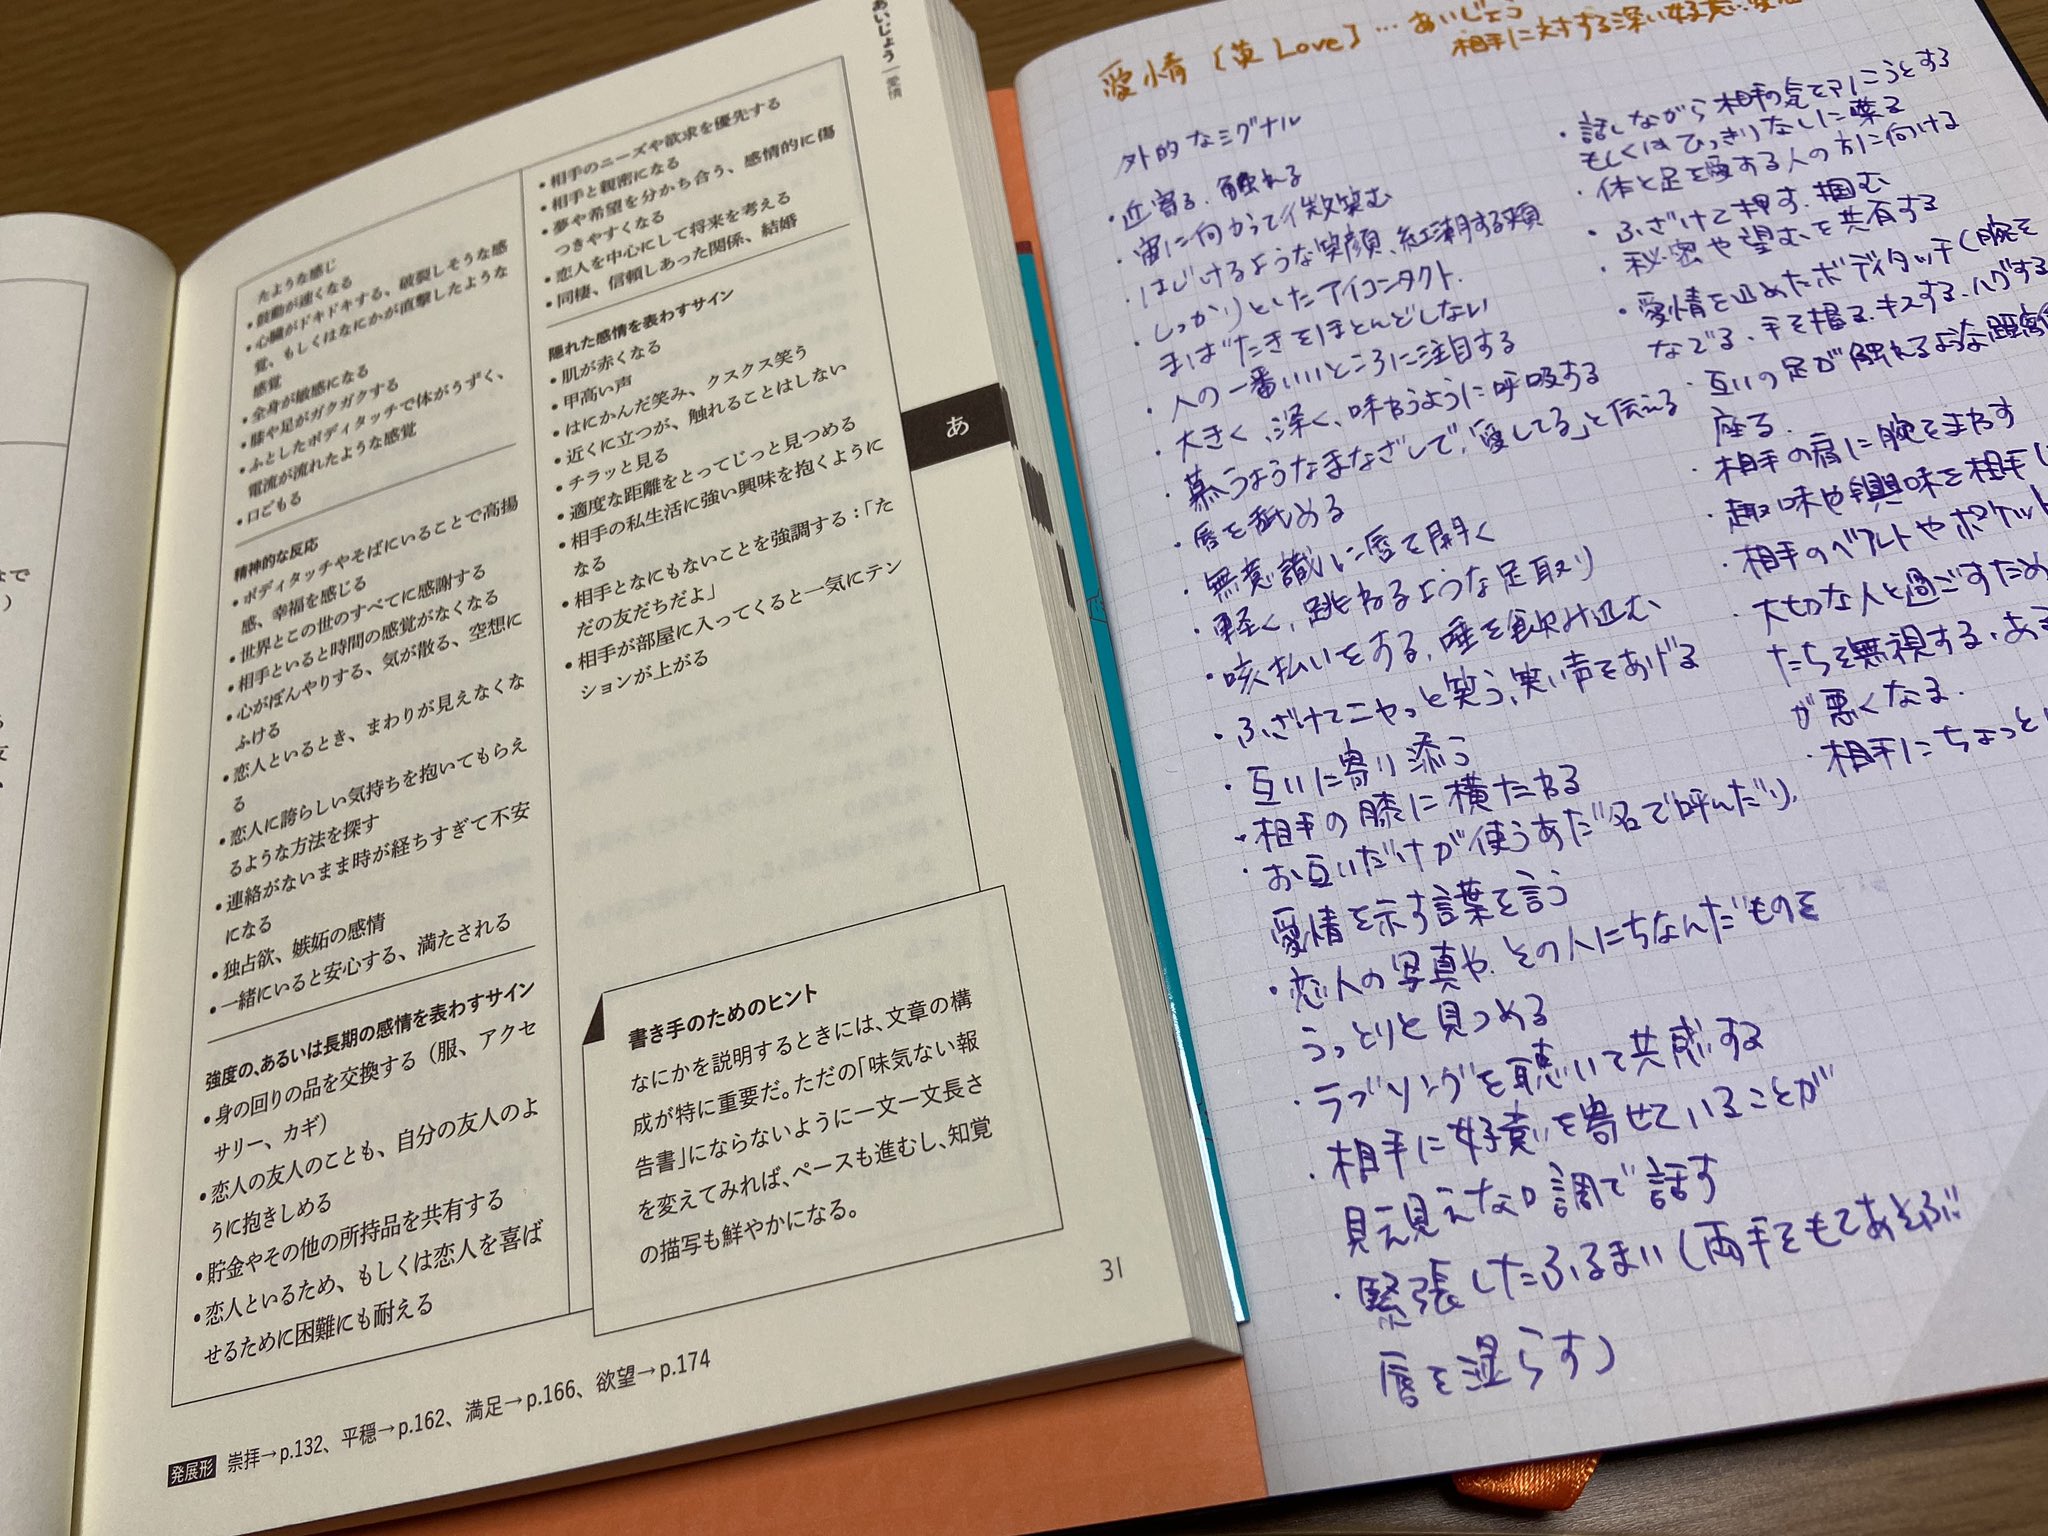 あいじょう｜愛情
たような感じ
•鼓動が速くなる
•心臓がドキドキする、破裂しそうな感
覚、もしくはなにかが直撃したような
感覚
•全身が敏感になる
•膝や足がガクガクする
•ふとしたボディタッチで体がうずく、
電流が流れたような感覚
•口ごもる
精神的な反応
•ボディタッチやそばにいることで高揚
感、幸福を感じる
•世界とこの世のすべてに感謝する
•相手といると時間の感覚がなくなる
•心がぼんやりする、気が散る、空想に
ふける
•恋人といるとき、まわりが見えなくな
る
•恋人に誇らしい気持ちを抱いてもらえ
るような方法を探す
•連絡がないまま時が経ちすぎて不安
になる
•独占欲、嫉妬の感情
•一緒にいると安心する、満たされる
強度の、あるいは長期の感情を表わすサイン
•身の回りの品を交換する（服、アクセ
サリー、カギ）
•恋人の友人のことも、自分の友人のよ
うに抱きしめる
•貯金やその他の所持品を共有する
•恋人といるため、もしくは恋人を喜ば
せるために困難にも耐える
•相手のニーズや欲求を優先する
•相手と親密になる
•夢や希望を分かち合う、感情的に傷
つきやすくなる
•恋人を中心にして将来を考える
•同棲、信頼しあった関係、結婚
隠れた感情を表わすサイン
•肌が赤くなる
•甲高い声
•はにかんだ笑み、クスクス笑う
•近くに立つが、触れることはしない
•チラッと見る
•適度な距離をとってじっと見つめる
•相手の私生活に強い興味を抱くように
なる
•相手となにもないことを強調する：「た
だの友だちだよ」
•相手が部屋に入ってくると一気にテン
ションが上がる
書き手のためのヒント
なにかを説明するときには、文章の構
成が特に重要だ。ただの「味気ない報
告書」にならないように一文一文長さ
を変えてみれば、ペースも進むし、知覚
の描写も鮮やかになる。
あ
31
発展形 崇拝→p.132、平穏→p.162、満足→p.166、欲望→p.174
愛情（英 Love）…あいじょう
相手に対する深い好意
外的なシグナル
・近寄る、触れる
・宙に向かって微笑む
・はじけるような笑顔、紅潮する頬
・しっかりとしたアイコンタクト、
まばたきをほとんどしない
・人の一番いいところに注目する
・大きく、深く、味わうように呼吸する
・慕うようなまなざしで、「愛してる」と伝える
・唇を舐める
・無意識に唇を開く
・軽く、跳ねるような足取り
・咳払いをする、唾を飲み込む
・ふざけてニヤっと笑う、笑い声をあげる
・互いに寄り添う
・相手の膝に横たわる
・お互いだけが使うあだ名で呼んだり、
愛情を示す言葉を言う
・恋人の写真や、その人にちなんだものを
うっとりと見つめる
・ラブソングを聴いて共感する
・相手に好意を寄せていることが
見え見えな口調で話す
・緊張したふるまい（両手をもてあそぶ
唇を湿らす）
・話しながら相手の気を
もしくはひっきりなしに喋る
・体と足を愛する人の方に向ける
・ふざけて押す、掴む
・秘密や望むを共有する
・愛情を込めたボディタッチ（腕を
なでる、手を握る、キスする、ハグする
・互いの足が触れるような距離
座る
・相手の肩に腕をまわす
・趣味や興味を相手
・相手のベルトやポケット
・大切な人と過ごすため
たちを無視する、
が悪くなる
・相手にちょっと